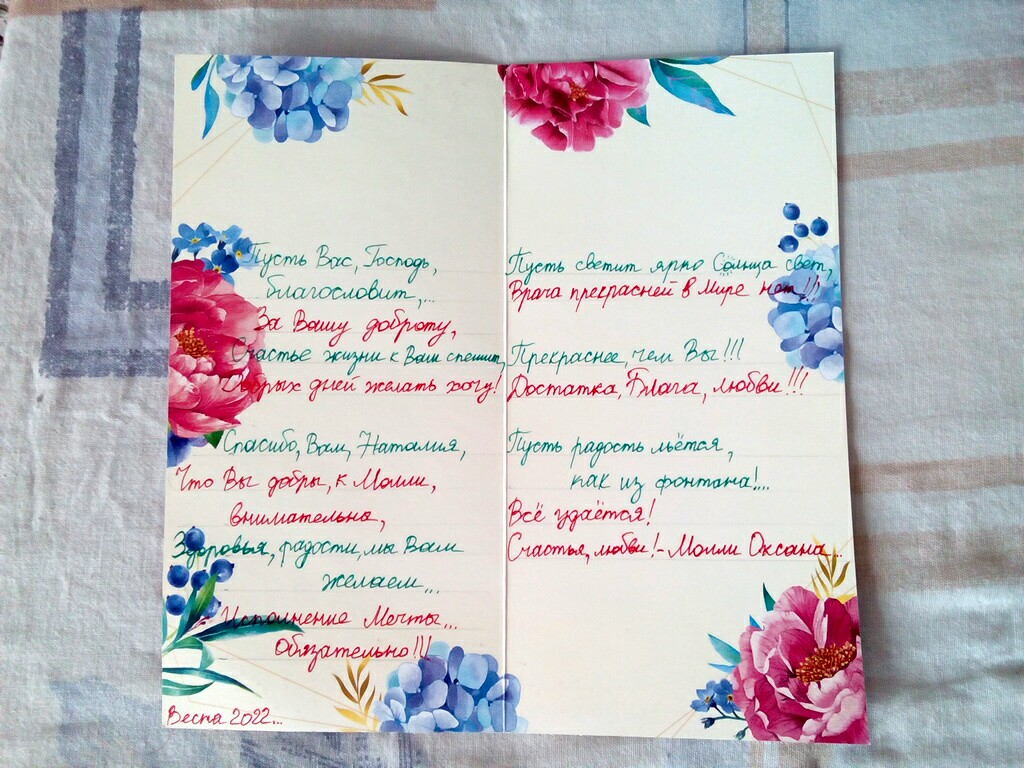 Пусть Вас, Господь,
благословит,...
За Вашу доброту,
Счастье жизни к Вам спешит,
Добрых дней желать хочу!
Спасибо, Вам, Наталия,
Что Вы добры, к Молли,
внимательна,
Здоровья, радости, мы Вам
желаем...
Исполнение Мечты...
Обязательно!!!
Весна 2022...
Пусть светит ярко Солнца свет,
Врача прекрасней в Мире нет!!!
Прекраснее, чем Вы!!!
Достатка, Блага, любви!!!
Пусть радость льётся,
как из фонтана!...
Всё удаётся!
Счастья, любви! - Молли Оксана...